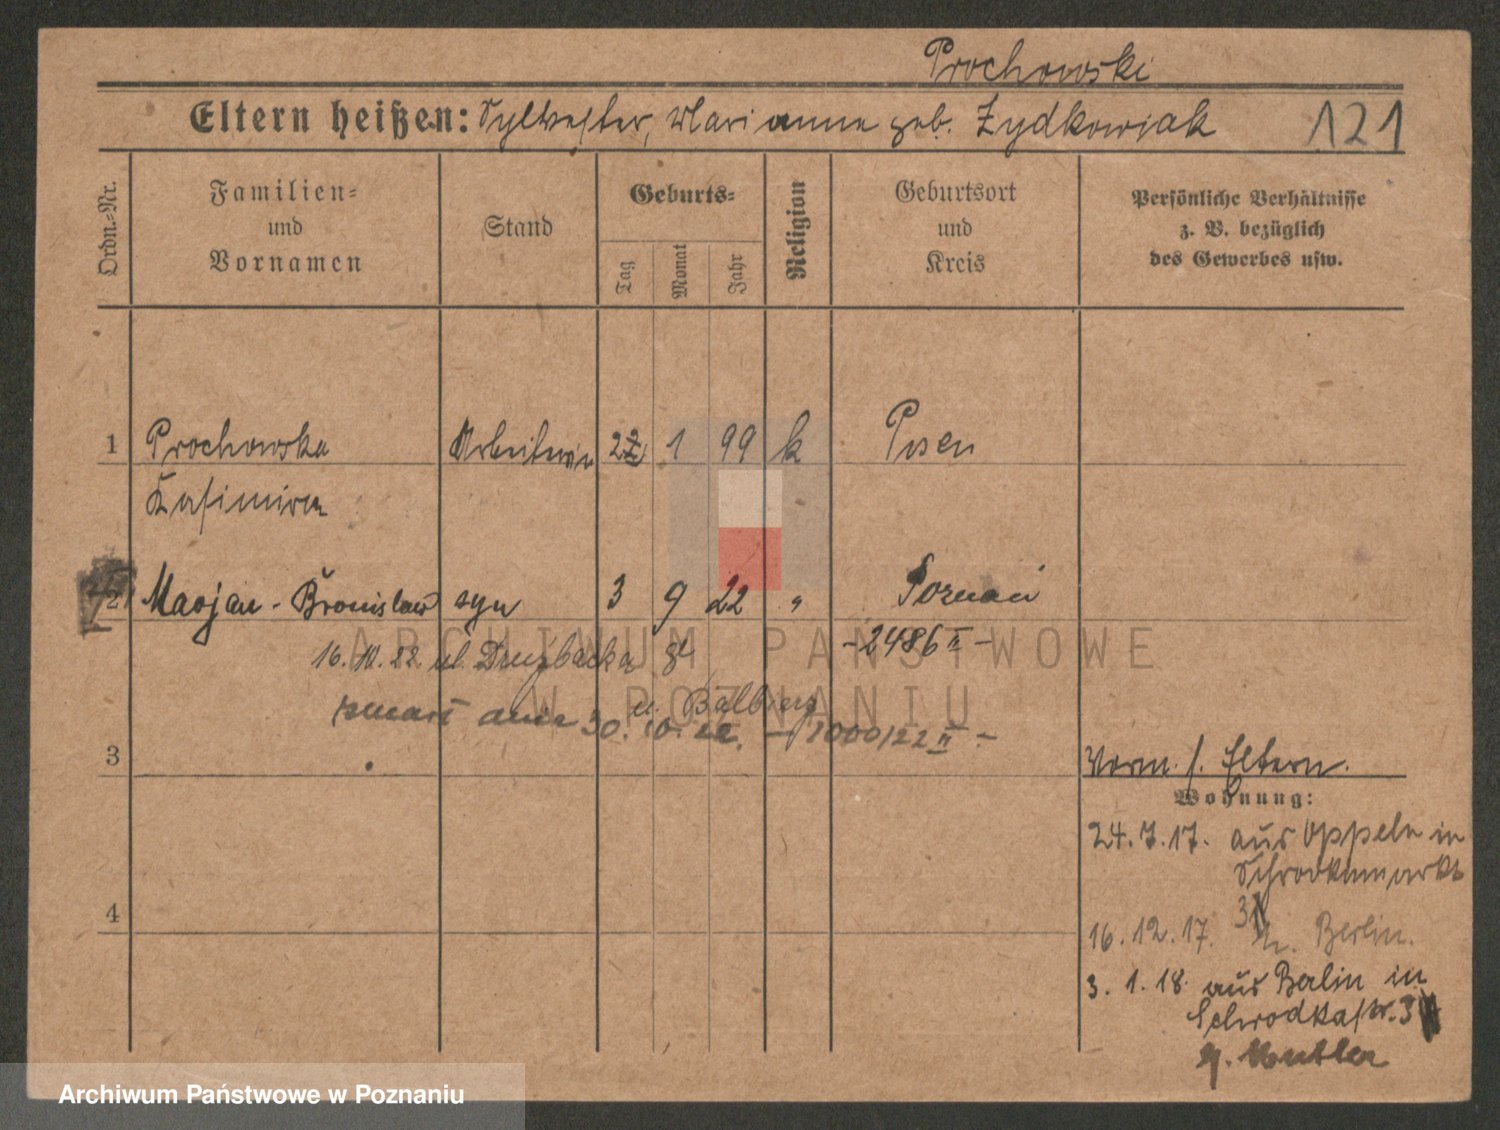 Prochowski
Eltern heißen: Sylwester, Marianne geb. Zydkowiak 121
Ordn.-Nr.
Familien-
und
Vornamen
Stand
Geburts-
Tag
Monat
Jahr
Religion
Geburtsort
und
Kreis
Persönliche Verhältnisse
z. B. bezüglich
des Gewerbes usw.
1 Prochowska Arbeiterin 22 1 99 k Posen
Kasimira
2 Marjan - Bronisław syn 3 9 22 " Poznań
16.10.22 ul. Drużbacka - 2486 II -
u. Balbierz
zmarł dnia 30.10.22. - 1000/22 II -
3
Vorm. s. Eltern.
Wohnung:
24.7.17. aus Oppeln in
Schrodkamarkt
4
16.12.17. n. Berlin.
3.1.18 aus Berlin in
Schrodkastr. 3
ARCHIWUM PAŃSTWOWE
W POZNANIU
Archiwum Państwowe w Poznaniu